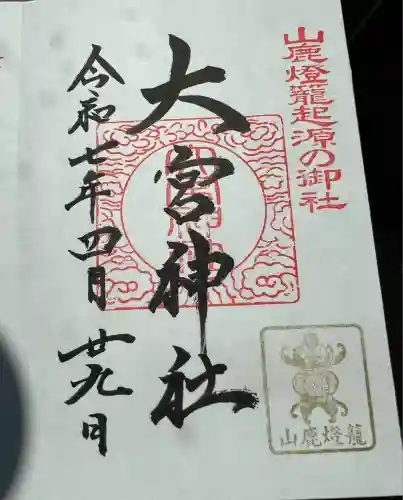 山鹿燈籠起源の御社
大宮神社
令和七年四月廿九日
山鹿燈籠